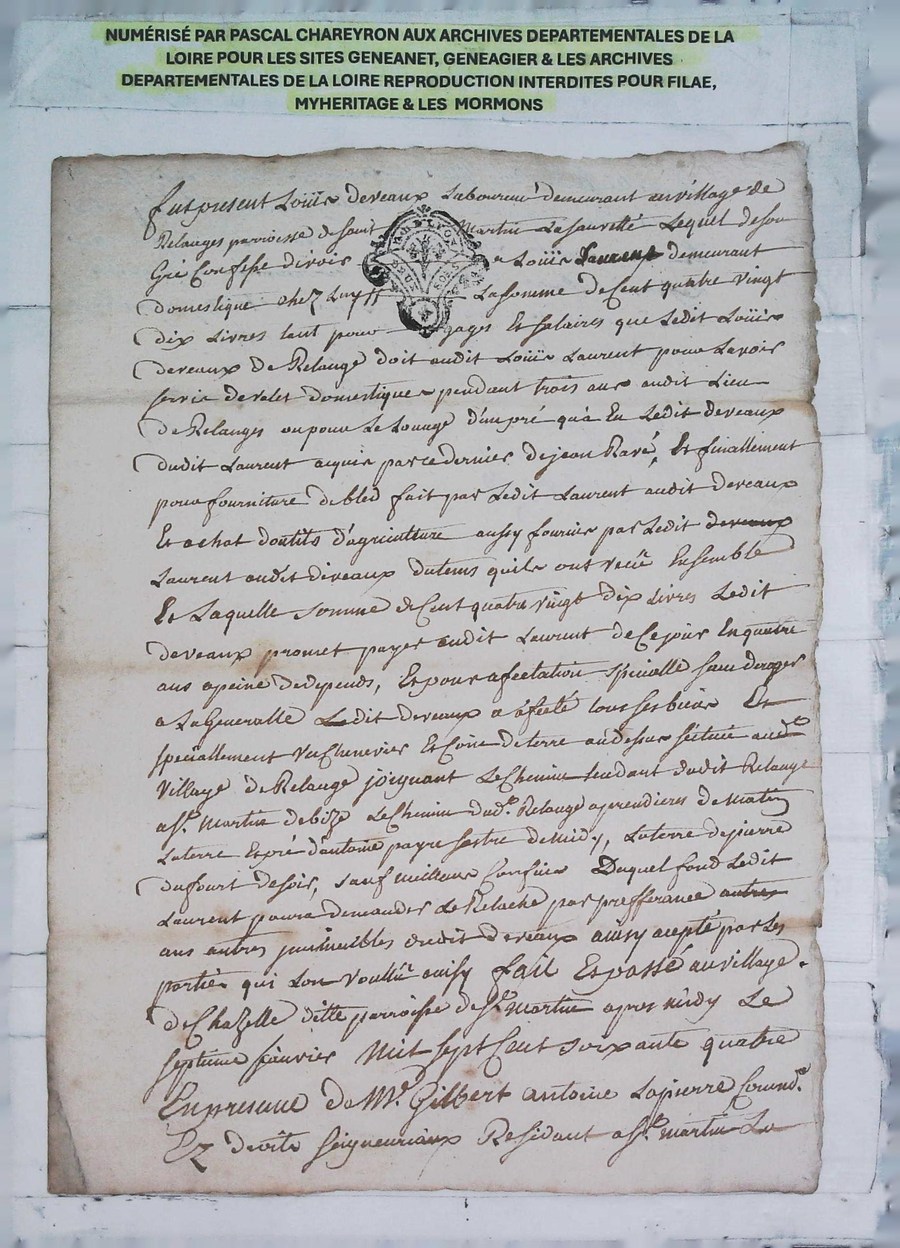 NUMÉRISÉ PAR PASCAL CHAREYRON AUX ARCHIVES DEPARTEMENTALES DE LA
LOIRE POUR LES SITES GENEANET, GENEAGIER & LES ARCHIVES
DEPARTEMENTALES DE LA LOIRE REPRODUCTION INTERDITES POUR FILAE,
MYHERITAGE & LES MORMONS
fut present Loüis deveaux Laboureur demeurant au village de
Relanges parroisse de saint Martin La sauveté Lequel de son
Gré Confesse devoir a Loüis Laurent demeurant
domestique chez Luy La somme de Cent quatre vingt
dix Livres tant pour gages Et salaires que Ledit Loüis
deveaux de Relange doit audit Loüis Laurent pour Lavoir
servie de valet domestique pendant trois ans audit Lieu
de Relanges ou pour Le Louage d'un pré qu'a Eu Ledit deveaux
dudit Laurent acquis par ce dernier de jean Ravé, Et finallement
pour fourniture de bled fait par Ledit Laurent audit deveaux
Et achat doutils d'agriculture aussy fournis par Ledit deveaux
Laurent audit deveaux du tems quils ont vecu Ensemble
Et Laquelle somme de Cent quatre vingt dix Livres Ledit
deveaux promet payer audit Laurent de Ce jour En quatre
ans a peine de depends, Et pour afectation spicialle sans deroger
a La Generalle Ledit deveaux a afecté tous ses biens Et
speciallement Un Chenevier Et Coin de terre au dessus scitués audt
village de Relange joignant Le Chemin tendant dudit Relange
a St Martin de bize Le Chemin dudt Relange a de matin
La terre Et pré d'antoine payre de midy, La terre de pierre
dufourt de soir, sauf meilleurs Confins Duquel fond Ledit
Laurent poura demander Le Relache par prefferance autres
aux autres immeubles dudit deveaux ainsy acepté par Les
parties qui Lon voullu ainsy fait Et passé au village
de Chazelle ditte parroisse de St Martin apres midy Le
septieme janvier Mil sept Cent soixante quatre
En presence de Mr Gilbert antoine Lapierre
Ez droits seigneuriaux Residant a St martin La